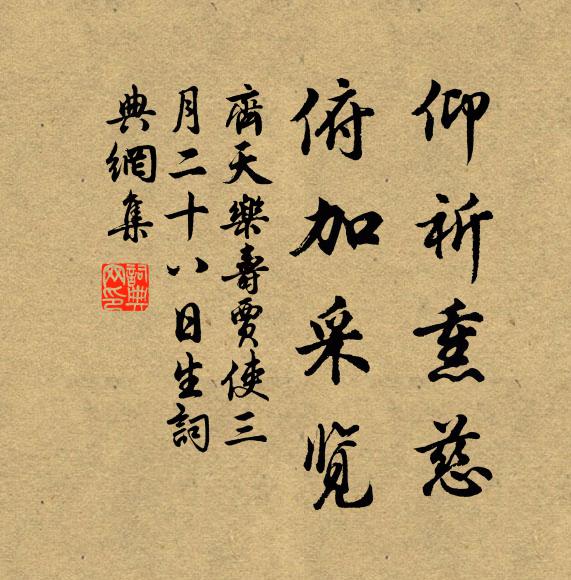 仰祈熏慈
俯加采览
齊天樂壽賈使三
月二十八日生詞
典網集
詞典
网印